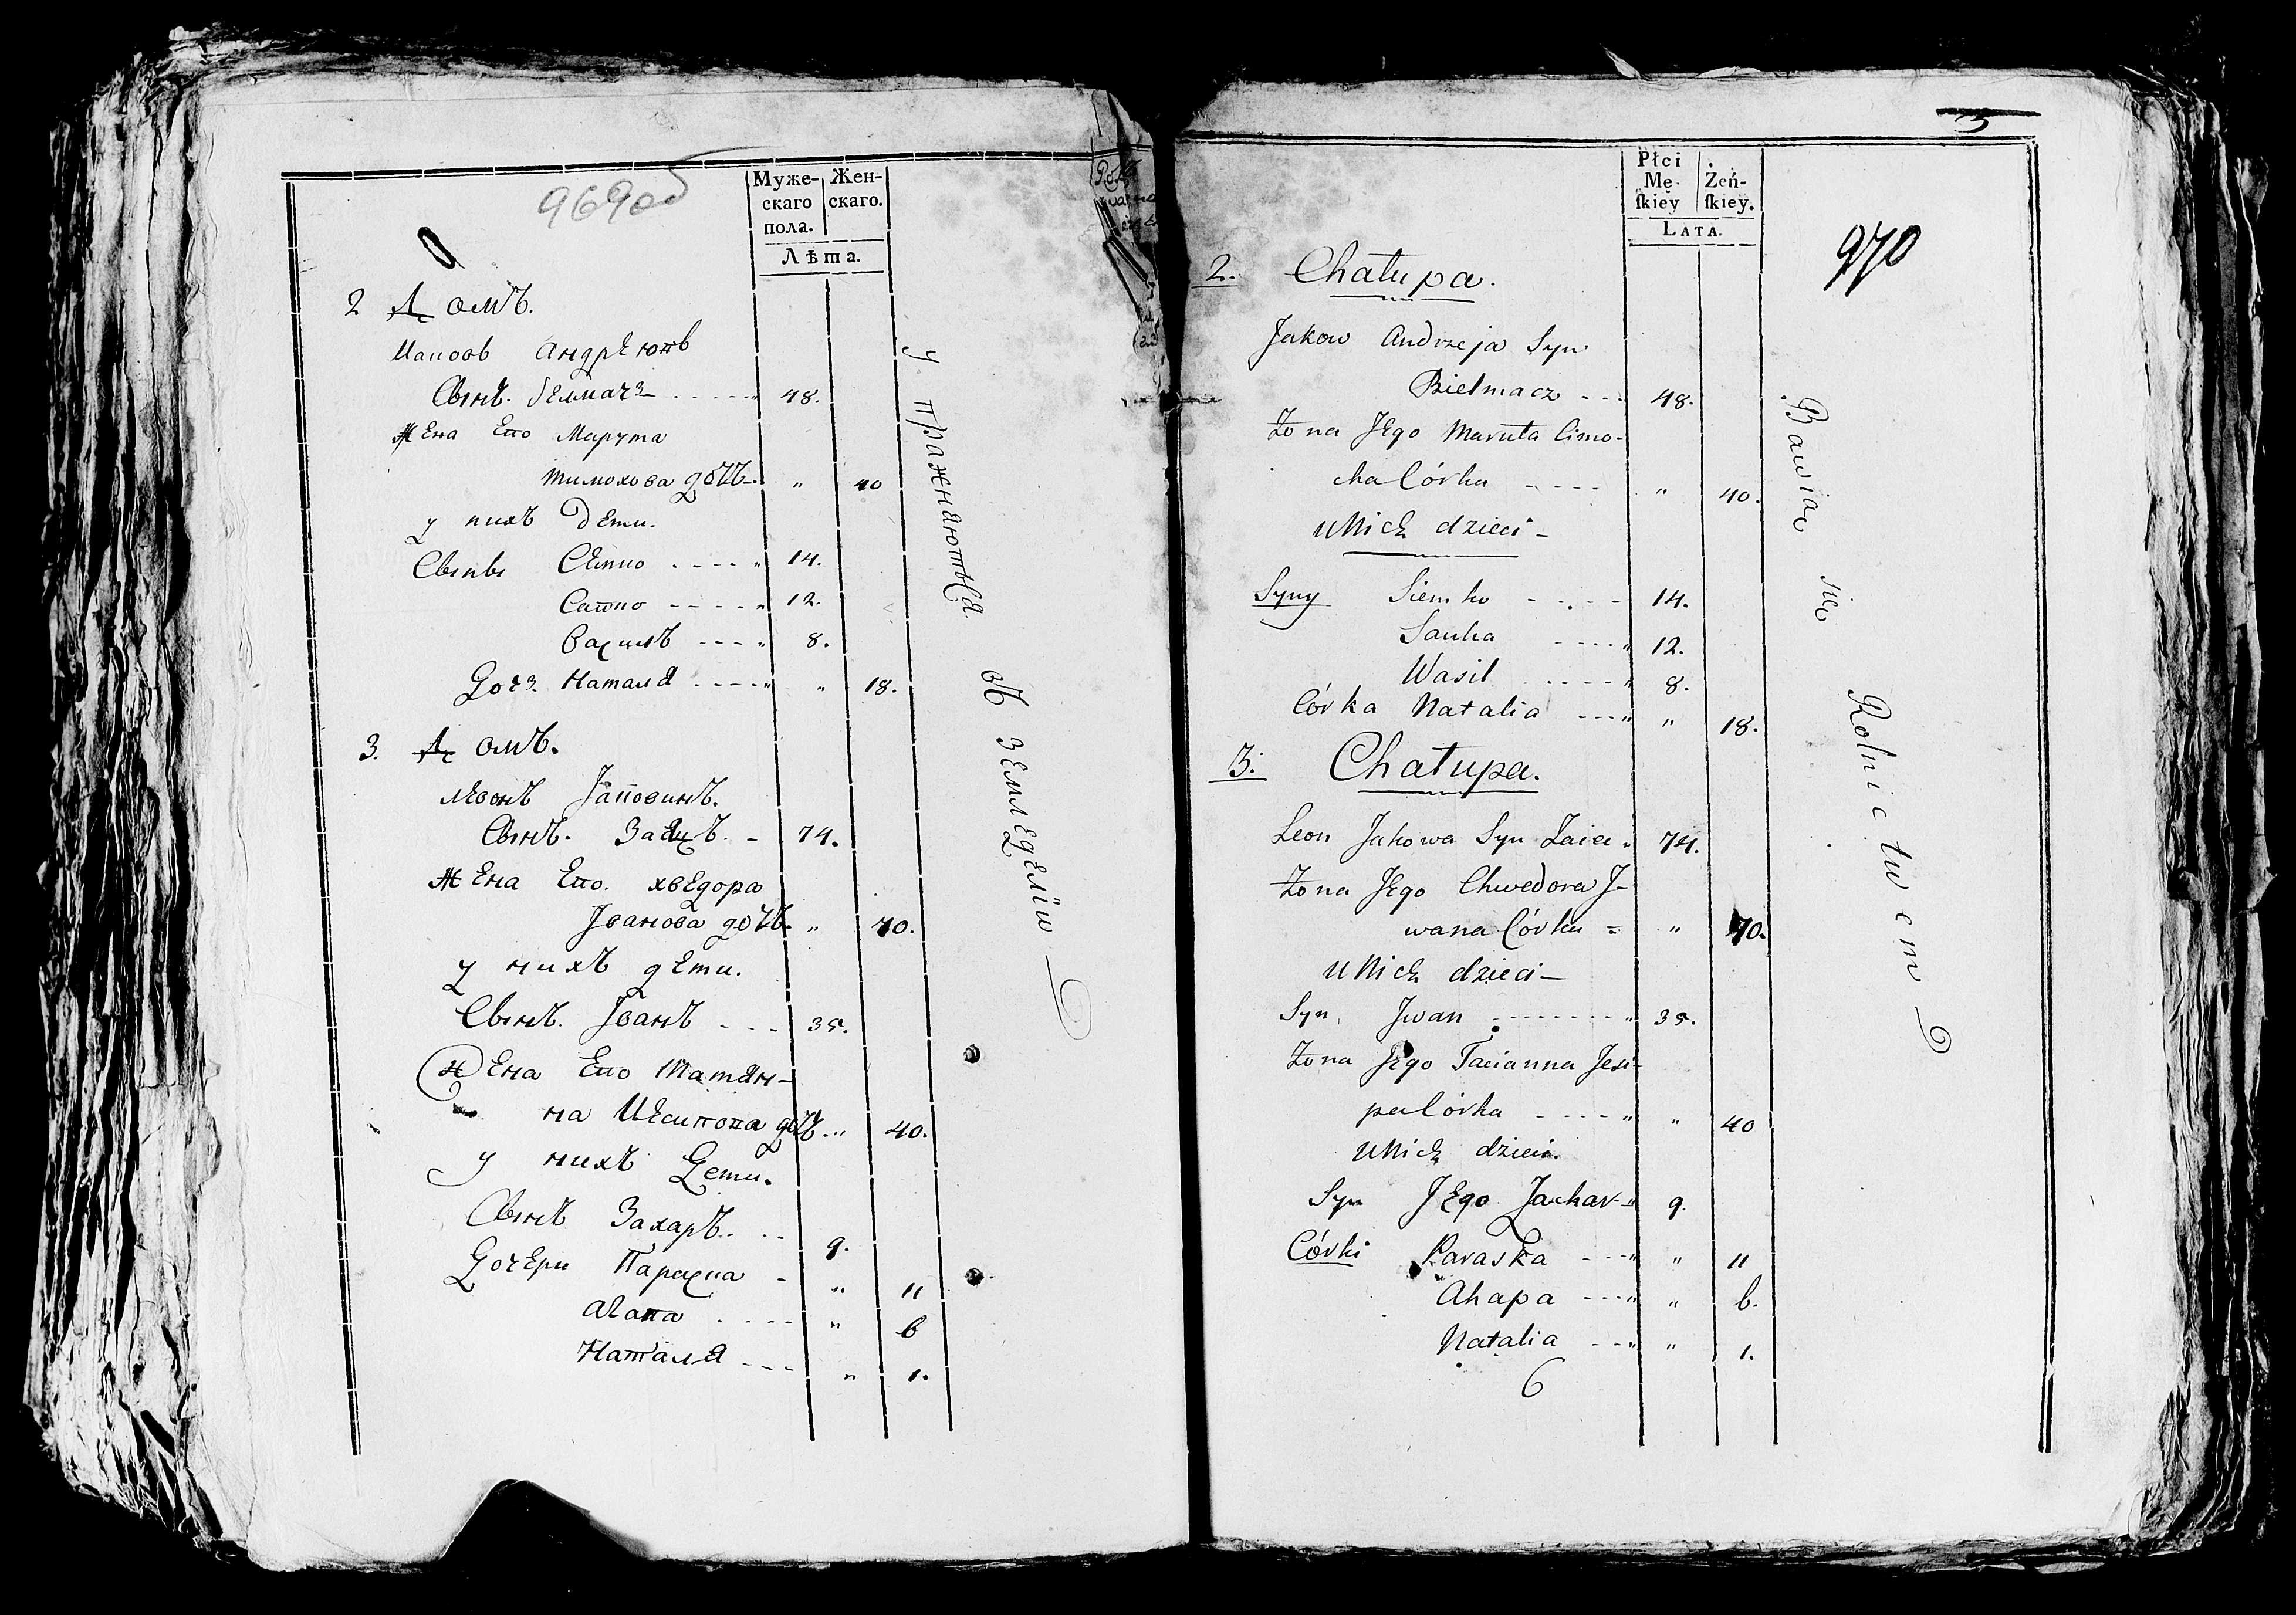 969об
Муже-
скаго
пола.
Жен-
скаго.
Лѣта.
2 Домъ.
Андрѣювъ
Сынъ. Белмачъ 48.
Жена Его Марута
тимохова дочь. " 40
у нихъ дети.
Сыны Семко 14.
Савко 12.
Василь 8.
Дочь Наталя " 18.
3. Домъ.
Левонъ Jаковинъ.
Сынъ. Заяцъ. 74.
Жена Его. хведора
Jванова дочь. " 70.
у нихъ дети.
Сынъ. Jванъ 35.
Жена Его Татян-
на дочь " 40.
у нихъ Дети.
Сынъ Захаръ. 9.
Дочери Параска " 11
Агапа " 6
Наталя " 1.
упражняються въ земледелiи
Płci
Mę-
ſkiey
Żeń-
ſkiey.
LATA.
970
2. Chałupa.
Jakow Andrzeja Syn
Bielmacz 48.
Żona JEgo Maruta Cimo-
cha Córka " 40.
u Nich dzieci
Syny Siemko 14.
Sauka 12.
Wasil 8.
Córka Natalia " 18.
3. Chałupa.
Leon Jakowa Syn Zaiec 74.
Żona JEgo Chwedora J-
wana Córka " 70.
u Nich dzieci
Syn Jwan 35.
Żona JEgo Tacianna Jesi-
pa Córka " 40
u Nich dzieci.
Syn JEgo Zachar 9.
Córki Paraska " 11
Ahapa " 6.
Natalia " 1.
6
Bawiao sie Rolnictwem